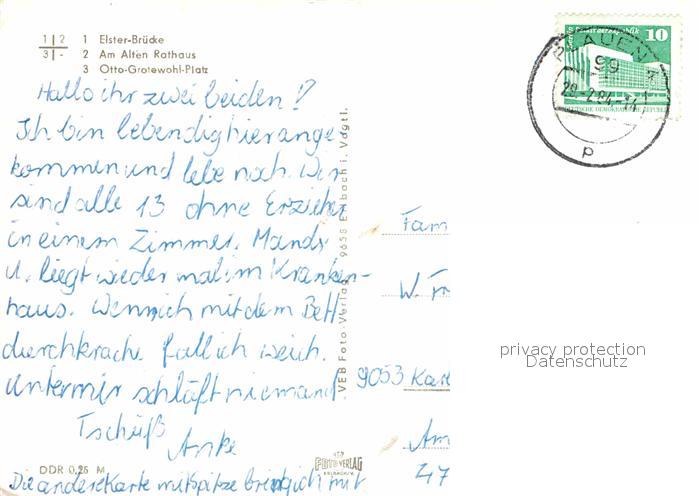 1 2 1 Elster-Brücke
3 - 2 Am Alten Rathaus
3 Otto-Grotewohl-Platz
Hallo ihr zwei beiden!
Ich bin lebendig hier ange
kommen und lebe noch. Wir
sind alle 13 ohne Erzieher
in einem Zimmer. Mandy
u. liegt wieder mal im Kranken-
haus. Wenn ich mit dem Bett
durchkrache fall ich weich.
Unter mir schläft niemand
Tschüß
Anke
DDR 0,25 M
Die andere Karte mit Spitze bring ich mit
VEB Foto-Verlag 9658 Erlbach i. Vogtl.
FOTO-VERLAG
ERLBACH
PLAUEN 4
99
-2.84-14
p
10
DEUTSCHE DEMOKRATISCHE REPUBLIK
Fam
W.
9053 Karl
Am
47
privacy protection
Datenschutz